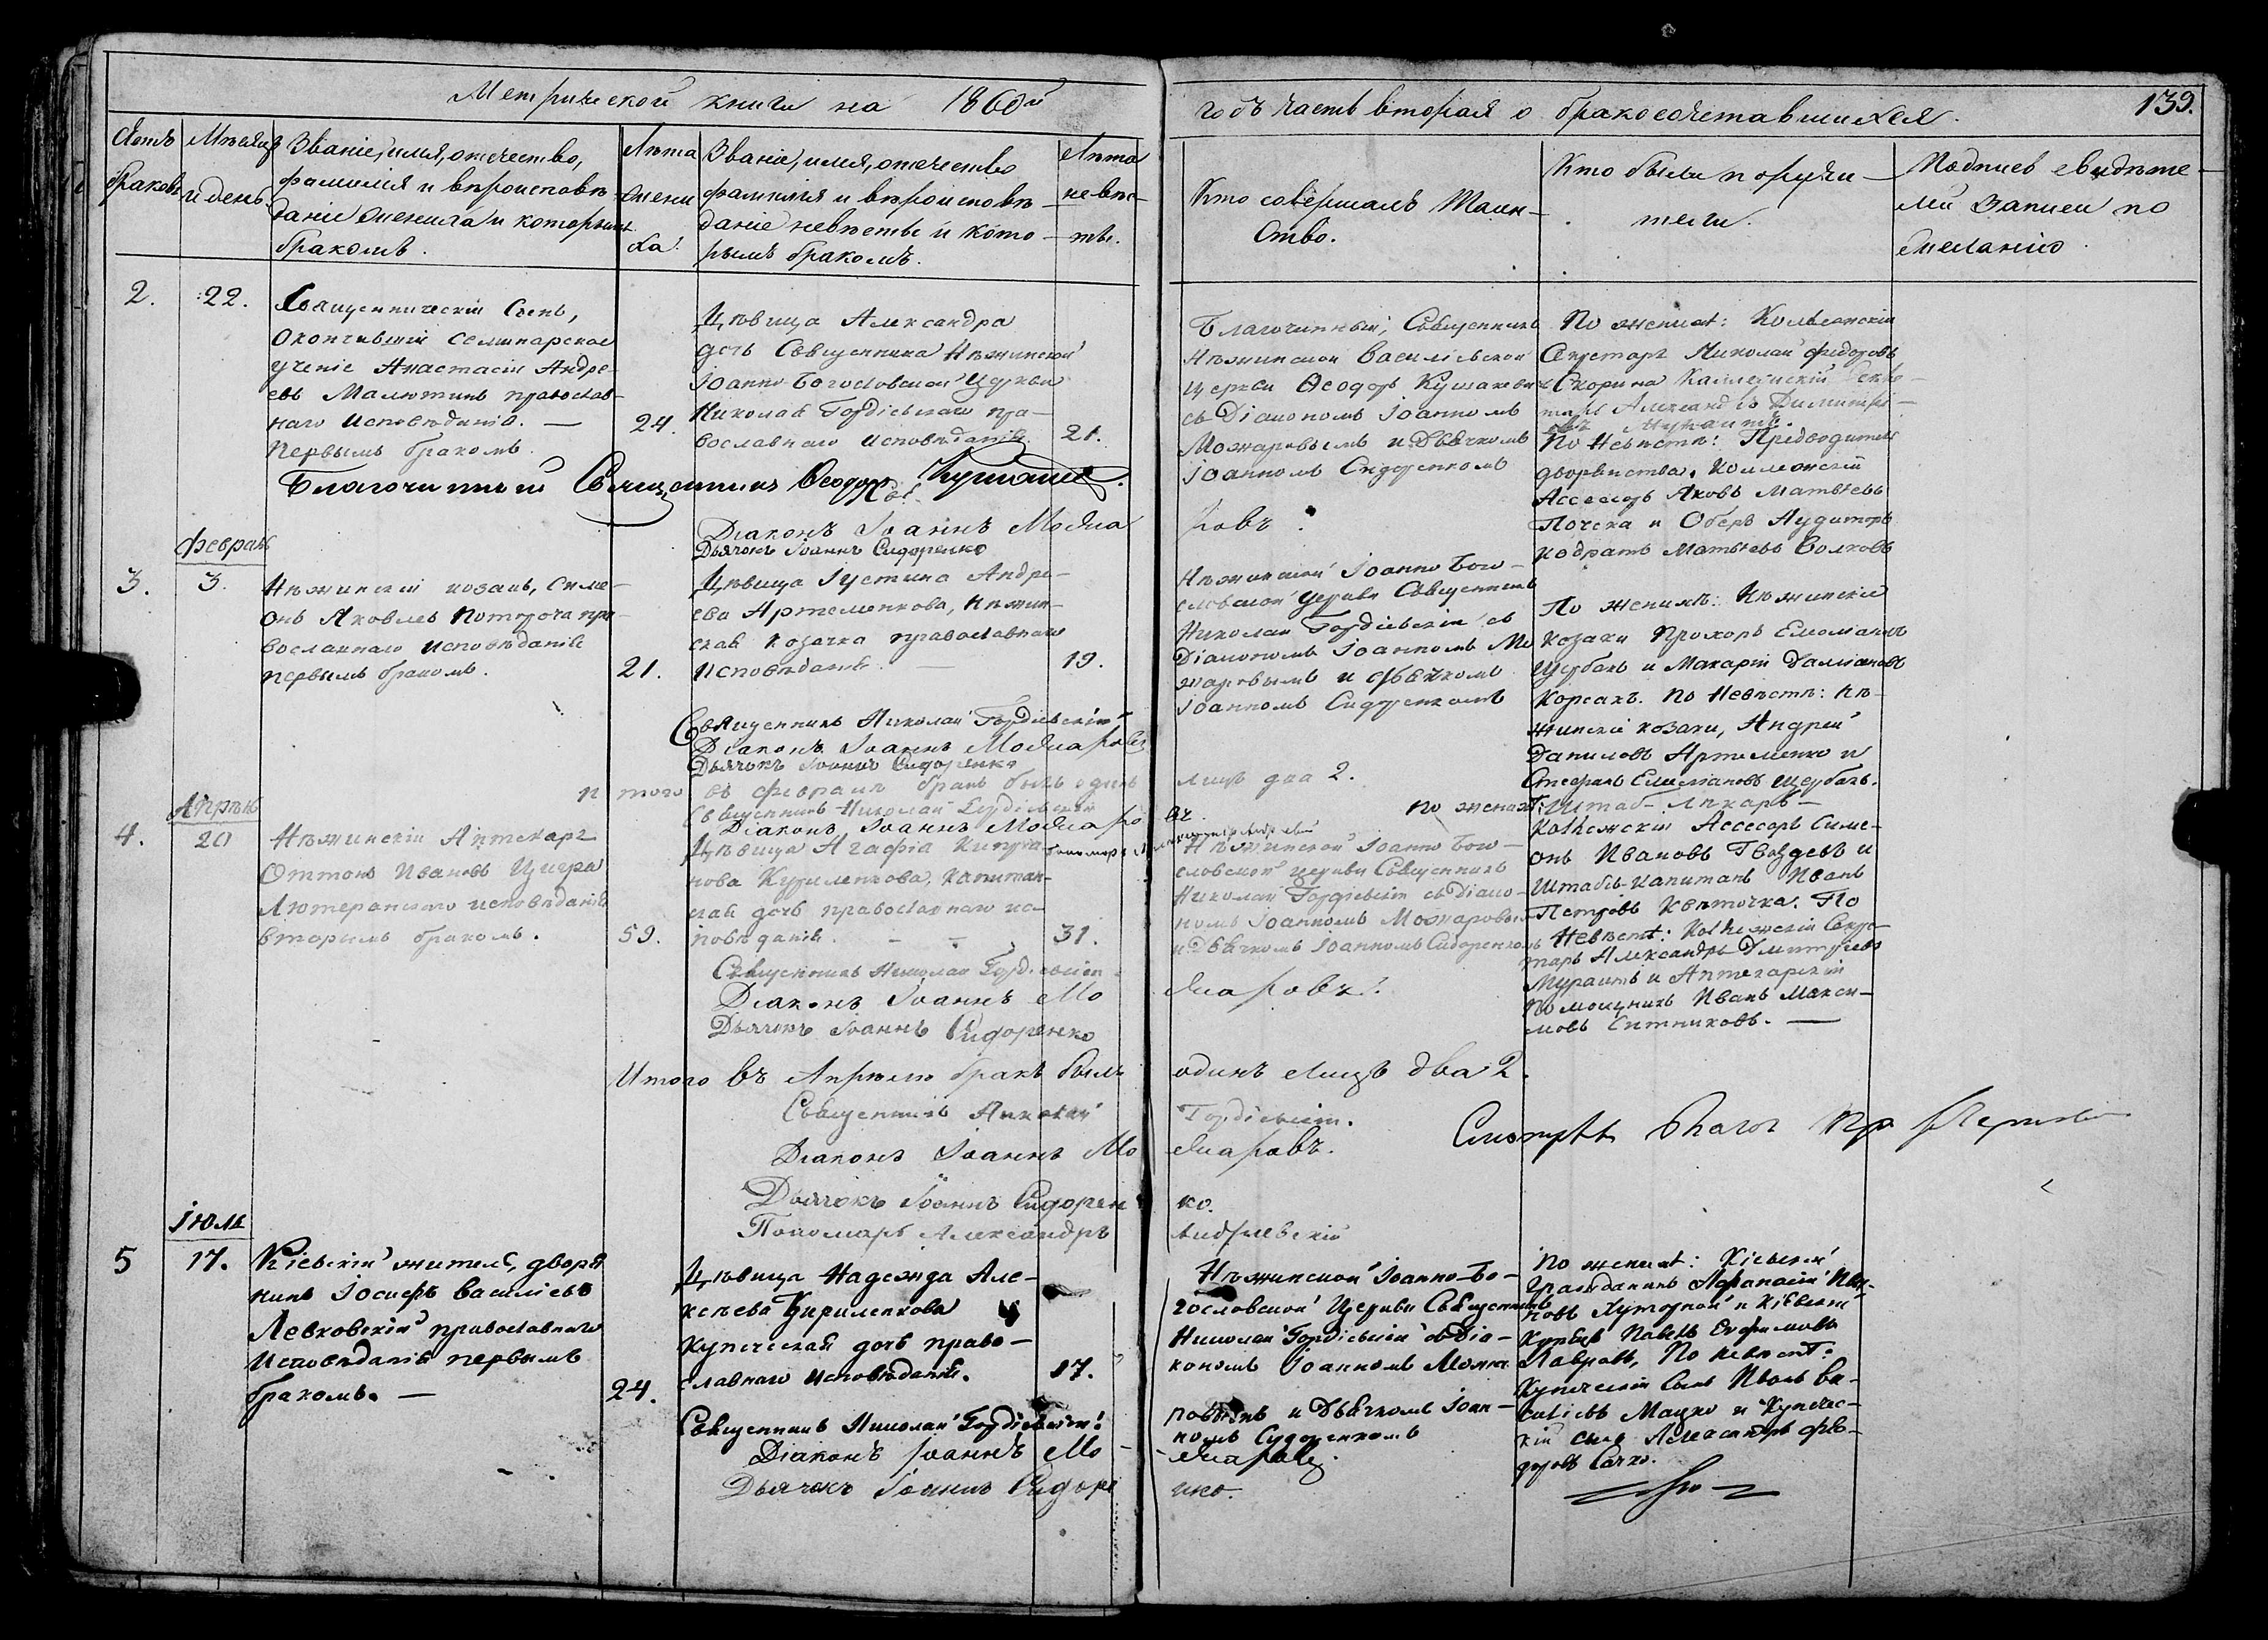 Метрической книги на 1860й
годъ часть вторая о бракосочетавшихся.
139.
Счетъ браковъ
Мѣсяцъ и день.
Званіе, имя, отечество,
фамилія и вѣроисповѣ-
даніе жениха и которымъ
бракомъ.
Лѣта
жени
ха.
Званіе, имя, отечество
фамилія и вѣроисповѣ-
даніе невѣсты и кото-
рымъ бракомъ.
Лѣта
невѣс-
ты.
Кто совершалъ Таин-
ство.
Кто были поручи-
тели.
Подписъ свидѣте-
лей записи по
желанію
2.
22.
Священническій Сынъ,
окончившій семинарское
ученіе Анастасій Андре-
евъ Малютинъ православ-
наго исповѣданія. —
первымъ бракомъ
24.
Дѣвица Александра
дочь Священника Нѣжинской
Іоанно-Богословской Церкви
Николая Гордіевскаго пра-
вославнаго исповѣданія.
21.
Благочинный, Священникъ
Нѣжинской Василіевской
церкви Ѳеодоръ
съ Діакономъ Іоанномъ
Можаровымъ и Дьячкомъ
Іоанномъ Сидоренкомъ
По женихѣ: Коллежскій
Секретарь Николай Федоровъ
Скорина Коллежскій Секре-
тарь Александръ Димитрі-
По Невѣстѣ: Предводитель
дворянства, Коллежскій
Ассесоръ Яковъ Матвѣевъ
Почека и Оберъ Аудиторъ
Кодратъ Матвѣевъ Волковъ
Благочинный Священникъ Ѳеодоръ
Діаконъ Іоаннъ Можа
ровъ.
Дьячокъ Іоаннъ Сидоренко
Феврал
3.
3.
Нѣжинскій козакъ, Симе-
онъ Яковлевъ Потороча пра-
вославнаго исповѣданія
первымъ бракомъ.
21.
Дѣвица Іустина Андре-
ева Артеменкова, Нѣжин-
ская козачка православнаго
исповѣданія. —
19.
Нѣжинской Іоанно Бого-
словской Церкви Священникъ
Николай Гордіевскій съ
Діакономъ Іоанномъ Мо
жаровымъ и дьячкомъ
Іоанномъ Сидоренкомъ
По женихѣ: Нѣжинскіе
козаки Прохоръ Емельяновъ
Щербакъ и Макарій Даміановъ
Корсакъ. По Невѣстѣ: Нѣ-
жинскіе козаки, Андрей
Даниловъ Артеменко и
Стефанъ Емельяновъ Щербакъ.
Священникъ Николай Гордіевскій
Діаконъ Іоаннъ Можаровъ
Дьячокъ Іоаннъ Сидоренко
Итого въ февралѣ бракъ былъ одинъ
лицъ два 2.
Священникъ Николай Гордіевскій
Діаконъ Іоаннъ Можаро
въ.
Апрѣль
4.
20
Нѣжинскій Аптекарь
Оттонъ Ивановъ Цигра
Лютеранскаго исповѣданія
вторымъ бракомъ.
59.
Дѣвица Агафія Кипріа-
нова Кириленкова, капитан-
ская дочь православнаго ис-
повѣданія. —
31.
Нѣжинской Іоанно Бого-
словской церкви Священникъ
Николай Гордіевскій съ Діако-
номъ Іоанномъ Можаровымъ
и Дьячкомъ Іоанномъ Сидоренкомъ
По женихѣ: Штаб-Лѣкарь-
Коллежскій Ассесоръ Симе-
онъ Ивановъ Гвоздевъ и
Штабсъ-Капитанъ Иванъ
Петровъ Квѣточка. По
Невѣстѣ: Коллежскій Секре-
тарь Александръ Дмитріевъ
и Аптекарскій
Помощникъ Иванъ Макси-
мовъ Ситниковъ. —
Священникъ Николай Гордіевскій
Діаконъ Іоаннъ Мо
жаровъ.
Дьячокъ Іоаннъ Сидоренко
Итого въ Апрѣлѣ бракъ былъ
одинъ лицъ два 2.
Священникъ Николай
Гордіевскій.
Діаконъ Іоаннъ Мо
жаровъ.
Дьячокъ Іоаннъ Сидорен
ко.
Пономарь Александръ
Андріевскій
Іюль
5
17.
Кіевскій житель, дворя
нинъ Іосифъ Василіевъ
Левковскій православнаго
исповѣданія первымъ
бракомъ. —
24.
Дѣвица Надежда Але-
ксѣева Кириленкова
купеческая дочь право-
славнаго исповѣданія.
17.
Нѣжинской Іоанно-Бо-
гословской Церкви Священникъ
Николай Гордіевскій съ Діа-
кономъ Іоанномъ Можа
ровымъ и Дьячкомъ Іоан-
номъ Сидоренкомъ
По женихѣ: Кіевскій
Гражданинъ Афанасій Ива-
новъ Хуторной и Кіевскій
Павелъ Ефимовъ
Лавровъ, По невѣстѣ:
Купеческій Сынъ Иванъ Ва-
силіевъ Мацко и Купечес-
кій сынъ Александръ Фео-
доровъ Сачко.
Священникъ Николай Гордіевскій
Діаконъ Іоаннъ Мо-
жаровъ.
Дьячокъ Іоаннъ Сидоре
нко.